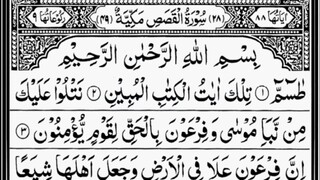 اٰیاتُهَا ۸۸ (۲۸) سُوْرَةُ الْقَصَصِ مَكِّیَّةٌ (۴۹) رُكُوْعَاتُهَا ۹
بِسْمِ اللّٰهِ الرَّحْمٰنِ الرَّحِیْمِ
طٰسٓمّٓ ۝۱ تِلْكَ اٰیٰتُ الْكِتٰبِ الْمُبِیْنِ ۝۲ نَتْلُوْا عَلَیْكَ
مِنْ نَّبَاِ مُوْسٰی وَ فِرْعَوْنَ بِالْحَقِّ لِقَوْمٍ یُّؤْمِنُوْنَ ۝۳
اِنَّ فِرْعَوْنَ عَلَا فِی الْاَرْضِ وَ جَعَلَ اَهْلَهَا شِیَعًا